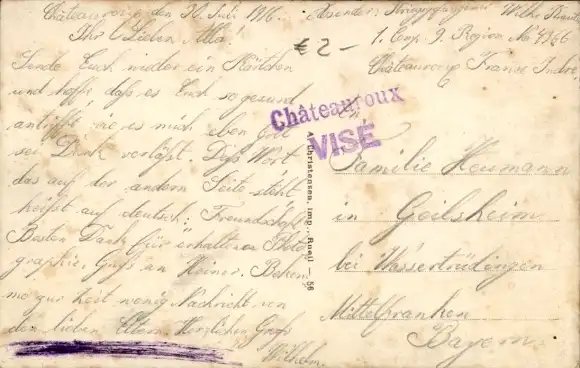 Châteauroux den 30. Juli 1916.
Ihr Lieben Alla!
Sende Euch wieder ein Kärtchen
und hoffe daß es Euch so gesund
antrifft wie es mich eben Gott
sei Dank verläßt. Dies Wort
das auf der andern Seite steht
heißt auf deutsch: Freundschaft
Besten Dank für erhaltene Photo
graphie. Gruß an Heiner. Bekom
me zur Zeit wenig Nachricht von
den lieben Eltern. Herzlichen Gruß
Wilhelm.
€ 2-
Absender: Kriegsgefangener Wilh.
1. Cop. 9. Region No 4366
Châteauroux France Indre
Châteauroux
VISÉ
A. Christensen, imp., Rueil - 56
Familie Heumann
in Geilsheim
bei Wassertrüdingen
Mittelfranken
Bayern